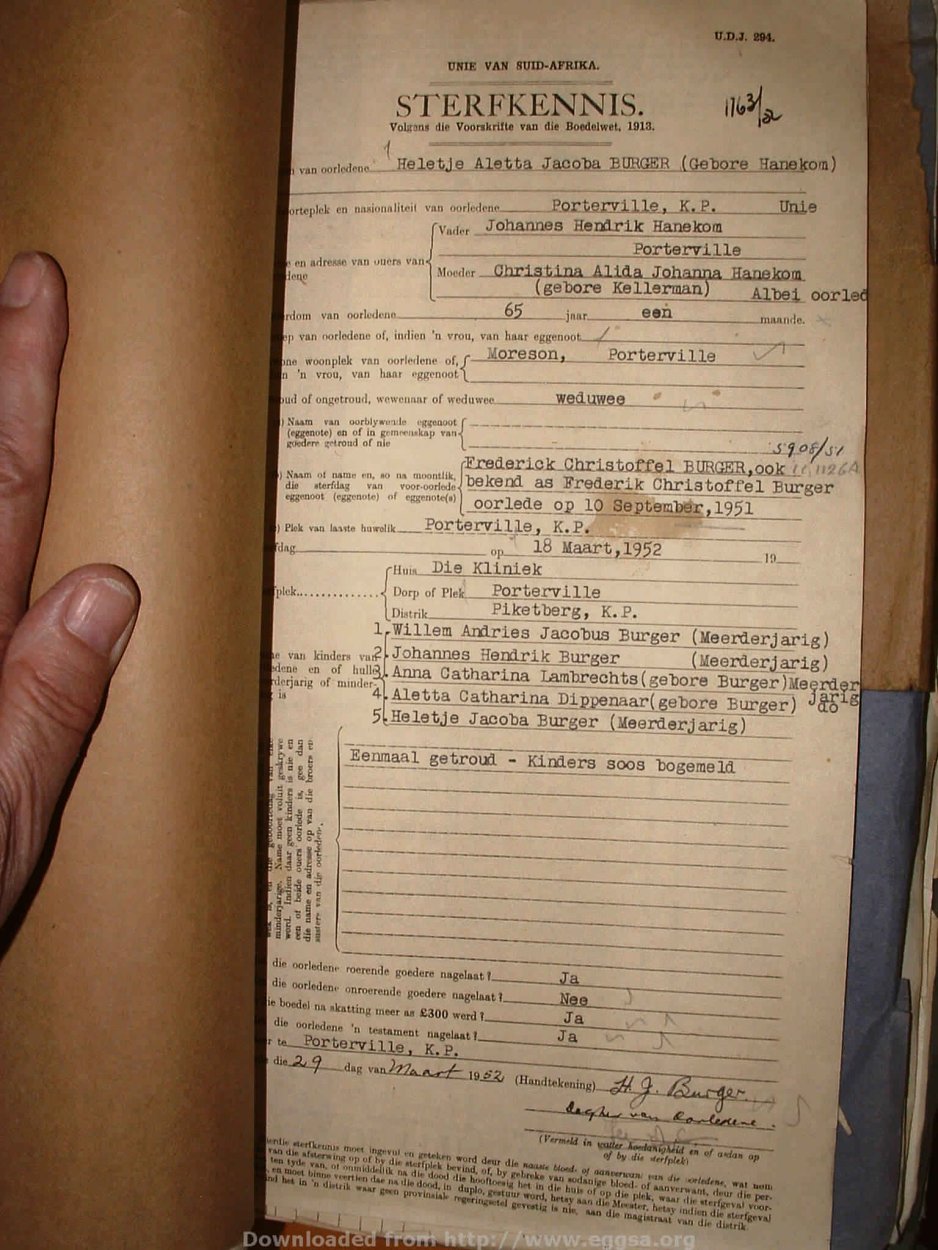 U.D.J. 294.
UNIE VAN SUID-AFRIKA.
STERFKENNIS.
1763/52
Volgens die Voorskrifte van die Boedelwet, 1913.
van oorledene Heletje Aletta Jacoba BURGER (Gebore Hanekom)
orteplek en nasionaliteit van oorledene Porterville, K.P. Unie
Vader Johannes Hendrik Hanekom
Porterville
e en adresse van ouers van
dene
Moeder Christina Alida Johanna Hanekom
(gebore Kellerman) Albei oorled
rdom van oorledene 65 jaar een maande.
ep van oorledene of, indien 'n vrou, van haar eggenoot
one woonplek van oorledene of, Moreson, Porterville
n 'n vrou, van haar eggenoot
oud of ongetroud, wewenaar of weduwee weduwee
) Naam van oorblywende eggenoot
(eggenote) en of in gemeenskap van
goedere getroud of nie
5908/51
) Naam of name en, so na moontlik, Frederick Christoffel BURGER, ook
die sterfdag van voor-oorlede bekend as Frederik Christoffel Burger
eggenoot (eggenote) of eggenote(s) oorlede op 10 September, 1951
) Plek van laaste huwelik Porterville, K.P.
fdag op 18 Maart, 1952 19
Huis Die Kliniek
fplek Dorp of Plek Porterville
Distrik Piketberg, K.P.
1. Willem Andries Jacobus Burger (Meerderjarig)
ne van kinders van 2. Johannes Hendrik Burger (Meerderjarig)
edene en of hulle 3. Anna Catharina Lambrechts (gebore Burger) Meerder
jarig
rderjarig of minder-
is
4. Aletta Catharina Dippenaar (gebore Burger) do
5. Heletje Jacoba Burger (Meerderjarig)
minderjarige. Name moet voluit geskrywe
word. Indien daar geen kinders is nie en
een of beide ouers oorlede is, gee dan
die name en adresse op van die broers en
susters van die oorledene.
Eenmaal getroud - Kinders soos bogemeld
die oorledene roerende goedere nagelaat? Ja
die oorledene onroerende goedere nagelaat? Nee
ie boedel na skatting meer as £300 werd? Ja
die oorledene 'n testament nagelaat? Ja
r te Porterville, K.P.
die 29 dag van Maart 1952 (Handtekening) H. J. Burger
dogter van oorledene.
(Vermeld in watter hoedanigheid en of aldan op
of by die sterfplek)
ierdie sterfkennis moet ingevul en geteken word deur die naaste bloed- of aanverwant van die oorledene, wat ten
van die afsterwing op of by die sterfplek bevind, of, by gebreke van sodanige bloed- of aanverwant, deur die per-
ten tyde van, of onmiddellik na die dood die hooftoesig het in die huis of op die plek, waar die sterfgeval voor-
en moet binne veertien dae na die dood, in duplo, gestuur word, hetsy aan die Meester, hetsy indien die sterfgeval
ind het in 'n distrik waar geen provinsiale regeringsetel gevestig is nie, aan die magistraat van die distrik.
Downloaded from http://www.eggsa.org